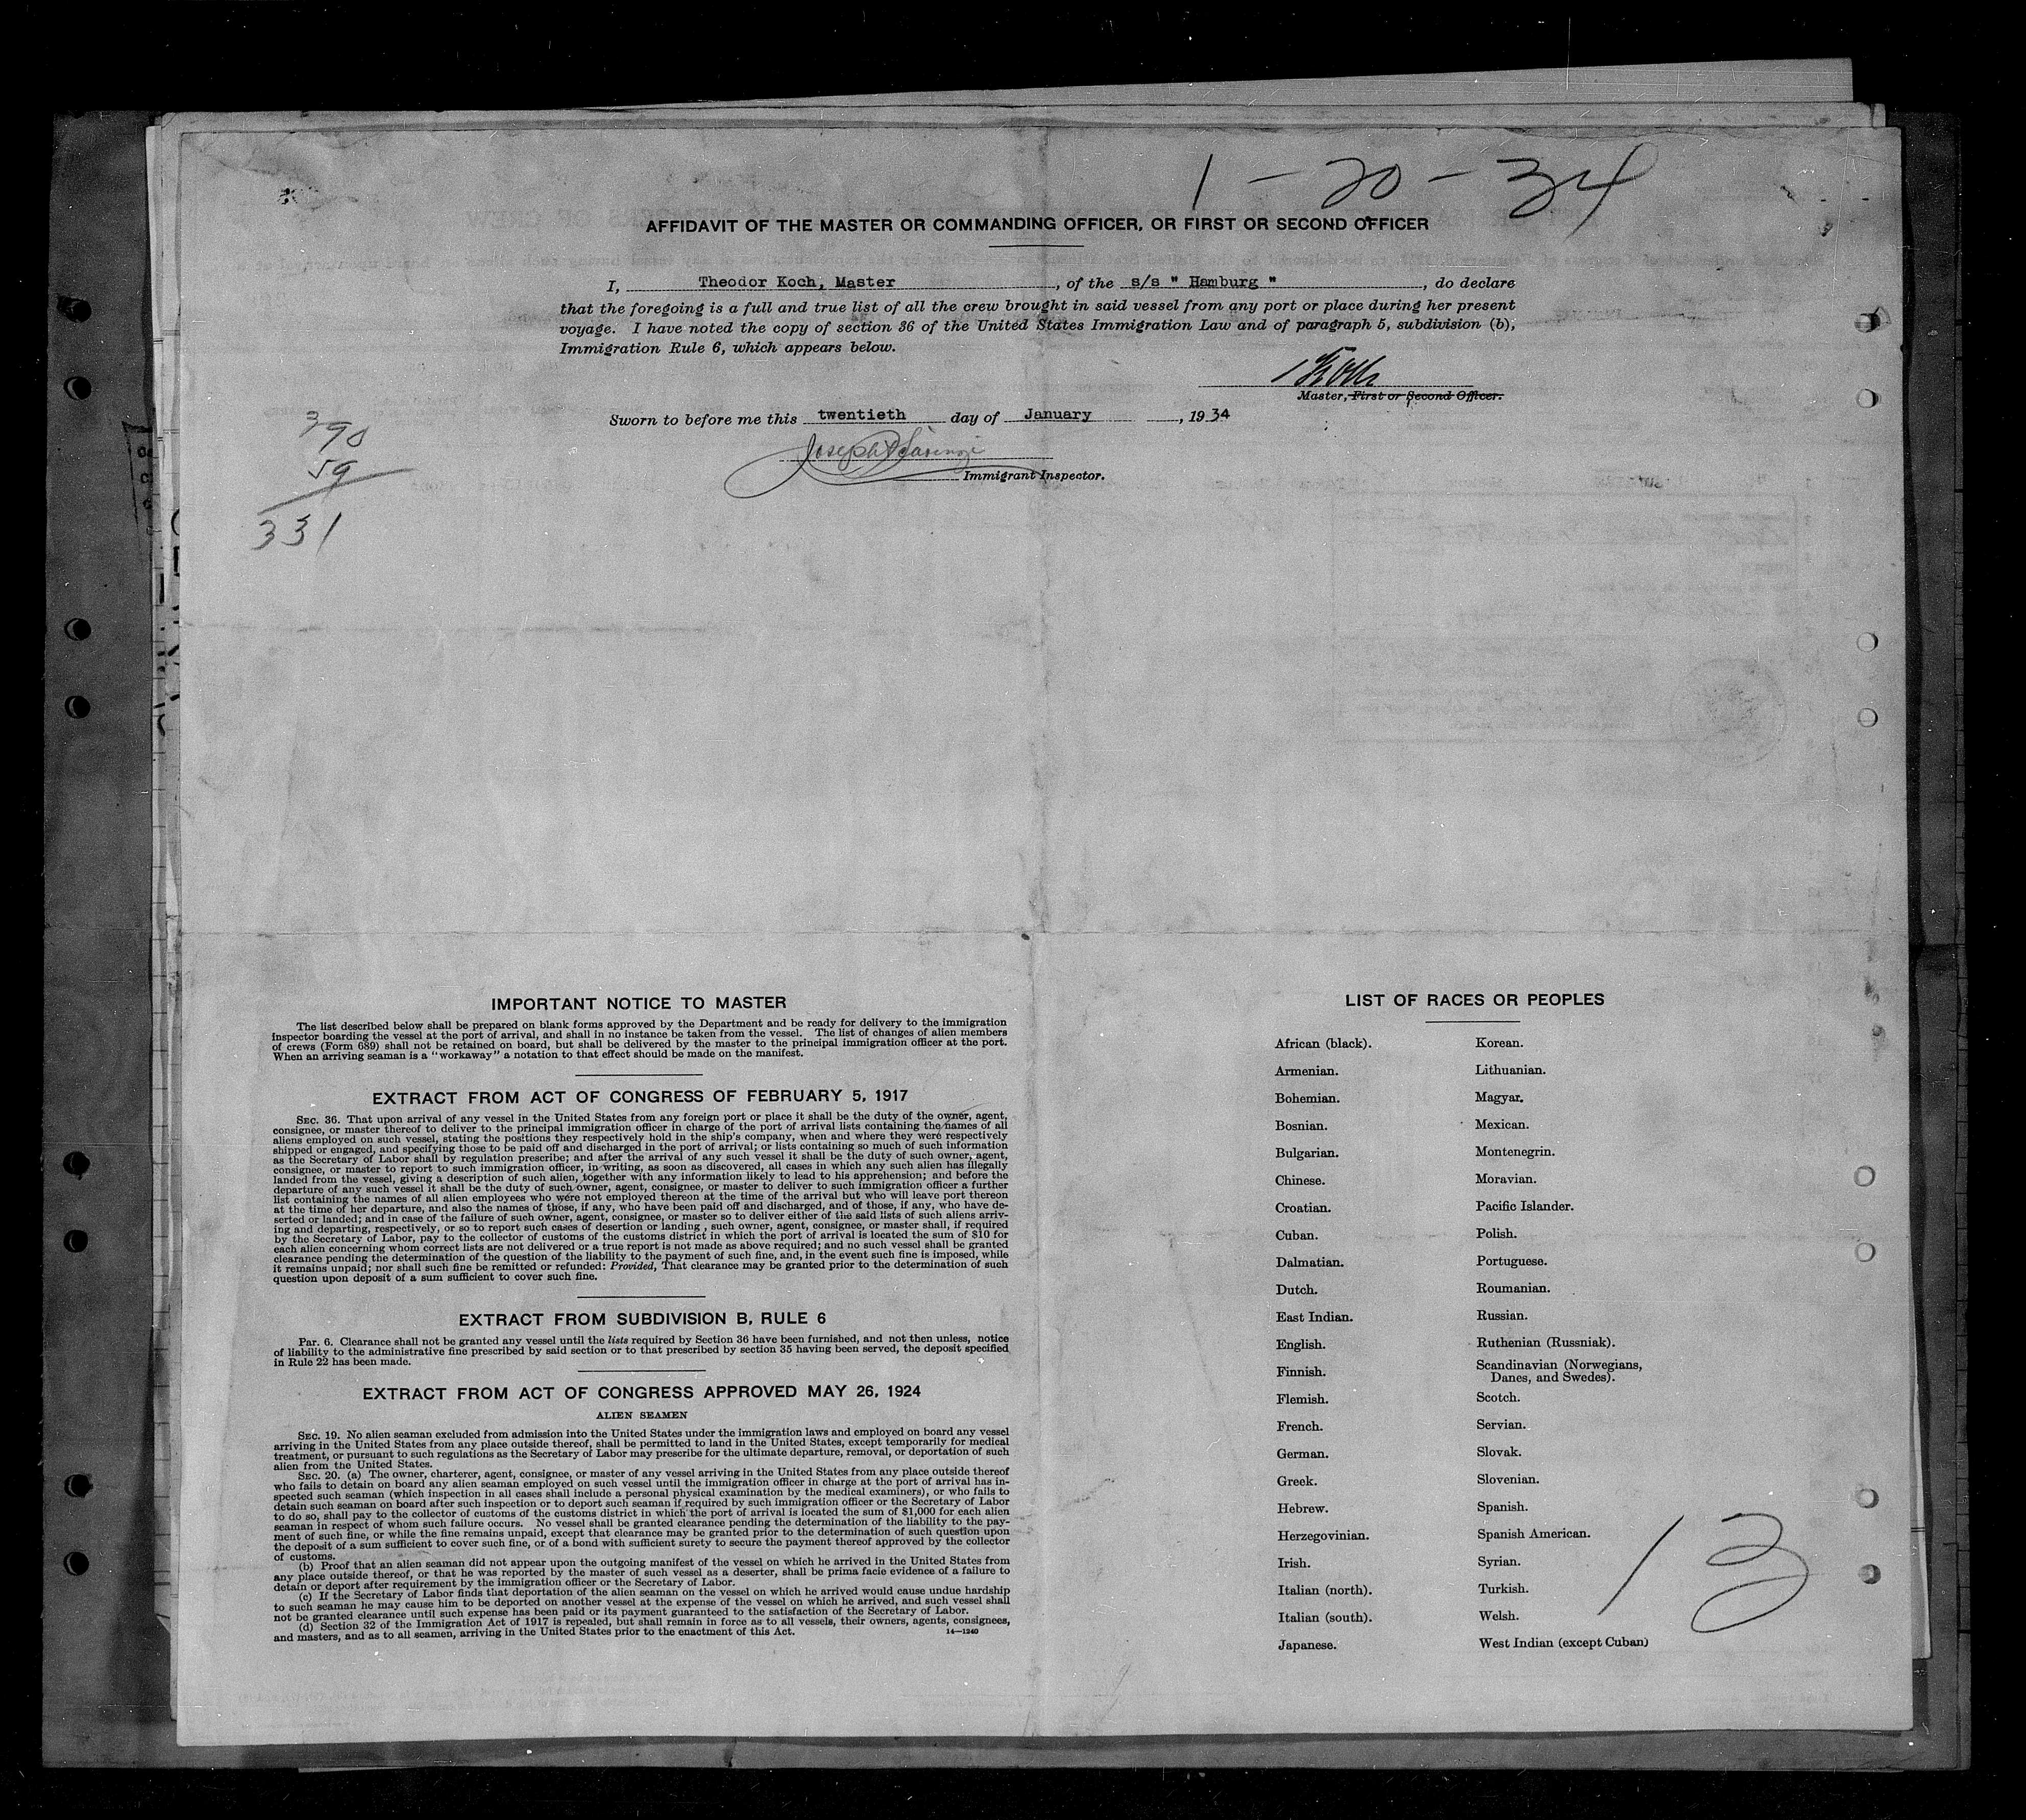 1 - 20 - 34
AFFIDAVIT OF THE MASTER OR COMMANDING OFFICER, OR FIRST OR SECOND OFFICER
I, Theodor Koch, Master, of the s/s " Hamburg ", do declare
that the foregoing is a full and true list of all the crew brought in said vessel from any port or place during her present
voyage. I have noted the copy of section 36 of the United States Immigration Law and of paragraph 5, subdivision (b),
Immigration Rule 6, which appears below.
Koch
Master, First or Second Officer.
Sworn to before me this twentieth day of January, 1934
Joseph
Immigrant Inspector.
390
59
331
IMPORTANT NOTICE TO MASTER
The list described below shall be prepared on blank forms approved by the Department and be ready for delivery to the immigration
inspector boarding the vessel at the port of arrival, and shall in no instance be taken from the vessel. The list of changes of alien members
of crews (Form 689) shall not be retained on board, but shall be delivered by the master to the principal immigration officer at the port.
When an arriving seaman is a "workaway" a notation to that effect should be made on the manifest.
EXTRACT FROM ACT OF CONGRESS OF FEBRUARY 5, 1917
SEC. 36. That upon arrival of any vessel in the United States from any foreign port or place it shall be the duty of the owner, agent,
consignee, or master thereof to deliver to the principal immigration officer in charge of the port of arrival lists containing the names of all
aliens employed on such vessel, stating the positions they respectively hold in the ship's company, when and where they were respectively
shipped or engaged, and specifying those to be paid off and discharged in the port of arrival; or lists containing so much of such information
as the Secretary of Labor shall by regulation prescribe; and after the arrival of any such vessel it shall be the duty of such owner, agent,
consignee, or master to report to such immigration officer, in writing, as soon as discovered, all cases in which any such alien has illegally
landed from the vessel, giving a description of such alien, together with any information likely to lead to his apprehension; and before the
departure of any such vessel it shall be the duty of such owner, agent, consignee, or master to deliver to such immigration officer a further
list containing the names of all alien employees who were not employed thereon at the time of the arrival but who will leave port thereon
at the time of her departure, and also the names of those, if any, who have been paid off and discharged, and of those, if any, who have de-
serted or landed; and in case of the failure of such owner, agent, consignee, or master so to deliver either of the said lists of such aliens arriv-
ing and departing, respectively, or so to report such cases of desertion or landing , such owner, agent, consignee, or master shall, if required
by the Secretary of Labor, pay to the collector of customs of the customs district in which the port of arrival is located the sum of $10 for
each alien concerning whom correct lists are not delivered or a true report is not made as above required; and no such vessel shall be granted
clearance pending the determination of the question of the liability to the payment of such fine, and, in the event such fine is imposed, while
it remains unpaid; nor shall such fine be remitted or refunded: Provided, That clearance may be granted prior to the determination of such
question upon deposit of a sum sufficient to cover such fine.
EXTRACT FROM SUBDIVISION B, RULE 6
Par. 6. Clearance shall not be granted any vessel until the lists required by Section 36 have been furnished, and not then unless, notice
of liability to the administrative fine prescribed by said section or to that prescribed by section 35 having been served, the deposit specified
in Rule 22 has been made.
EXTRACT FROM ACT OF CONGRESS APPROVED MAY 26, 1924
ALIEN SEAMEN
SEC. 19. No alien seaman excluded from admission into the United States under the immigration laws and employed on board any vessel
arriving in the United States from any place outside thereof, shall be permitted to land in the United States, except temporarily for medical
treatment, or pursuant to such regulations as the Secretary of Labor may prescribe for the ultimate departure, removal, or deportation of such
alien from the United States.
SEC. 20. (a) The owner, charterer, agent, consignee, or master of any vessel arriving in the United States from any place outside thereof
who fails to detain on board any alien seaman employed on such vessel until the immigration officer in charge at the port of arrival has in-
spected such seaman (which inspection in all cases shall include a personal physical examination by the medical examiners), or who fails to
detain such seaman on board after such inspection or to deport such seaman if required by such immigration officer or the Secretary of Labor
to do so, shall pay to the collector of customs of the customs district in which the port of arrival is located the sum of $1,000 for each alien
seaman in respect of whom such failure occurs. No vessel shall be granted clearance pending the determination of the liability to the pay-
ment of such fine, or while the fine remains unpaid, except that clearance may be granted prior to the determination of such question upon
the deposit of a sum sufficient to cover such fine, or of a bond with sufficient surety to secure the payment thereof approved by the collector
of customs.
(b) Proof that an alien seaman did not appear upon the outgoing manifest of the vessel on which he arrived in the United States from
any place outside thereof, or that he was reported by the master of such vessel as a deserter, shall be prima facie evidence of a failure to
detain or deport after requirement by the immigration officer or the Secretary of Labor.
(c) If the Secretary of Labor finds that deportation of the alien seaman on the vessel on which he arrived would cause undue hardship
to such seaman he may cause him to be deported on another vessel at the expense of the vessel on which he arrived, and such vessel shall
not be granted clearance until such expense has been paid or its payment guaranteed to the satisfaction of the Secretary of Labor.
(d) Section 32 of the Immigration Act of 1917 is repealed, but shall remain in force as to all vessels, their owners, agents, consignees,
and masters, and as to all seamen, arriving in the United States prior to the enactment of this Act.
14—1240
LIST OF RACES OR PEOPLES
African (black).
Armenian.
Bohemian.
Bosnian.
Bulgarian.
Chinese.
Croatian.
Cuban.
Dalmatian.
Dutch.
East Indian.
English.
Finnish.
Flemish.
French.
German.
Greek.
Hebrew.
Herzegovinian.
Irish.
Italian (north).
Italian (south).
Japanese.
Korean.
Lithuanian.
Magyar.
Mexican.
Montenegrin.
Moravian.
Pacific Islander.
Polish.
Portuguese.
Roumanian.
Russian.
Ruthenian (Russniak).
Scandinavian (Norwegians,
Danes, and Swedes).
Scotch.
Servian.
Slovak.
Slovenian.
Spanish.
Spanish American.
Syrian.
Turkish.
Welsh.
West Indian (except Cuban)
13